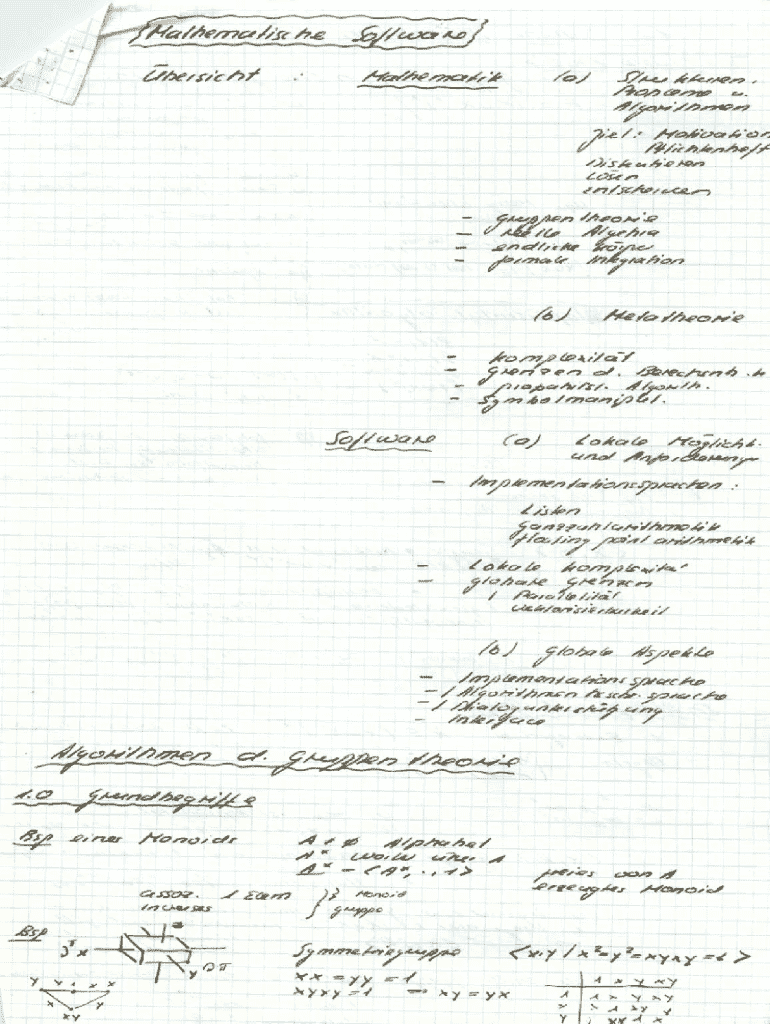 Mathematische Software
Übersicht : Mathematik (a) Strukturen,
Probleme u.
Algorithmen
Ziel: Motivation
Pflichtenheft
Diskutieren
Lösen
entscheiden
- Gruppentheorie
- reelle Algebra
- endliche Körper
- formale Integration
(b) Metatheorie
- Komplexität
- Grenzen d. Berechenb.k
- probabilist. Algorith.
- Symbolmanipul.
Software (a) Lokale Möglichk.
und Anforderung
- Implementationssprachen:
Listen
Ganzzahlarithmetik
floating point arithmetik
- Lokale Komplexität
- globale Grenzen
Parallelität
Vektorisierbarkeit
(b) globale Aspekte
- Implementationssprache
- Algorithmenbeschr.sprache
- Dialogunterstützung
- Interface
Algorithmen d. Gruppentheorie
1.0 Grundbegriffe
Bsp eines Monoids A ≠ ∅ Alphabet
A* Worte über A
A* = <A*, ., 1> freies von A
erzeugtes Monoid
assoz. 1 Elem } Monoid
inverses } gruppe
Bsp
Symmetriegruppe <x,y / x²=y²=xyxy=1>
xx = yy = 1
xyxy=1 xy = yx
1 x y xy
1 1 x y xy
x x 1 xy y
y